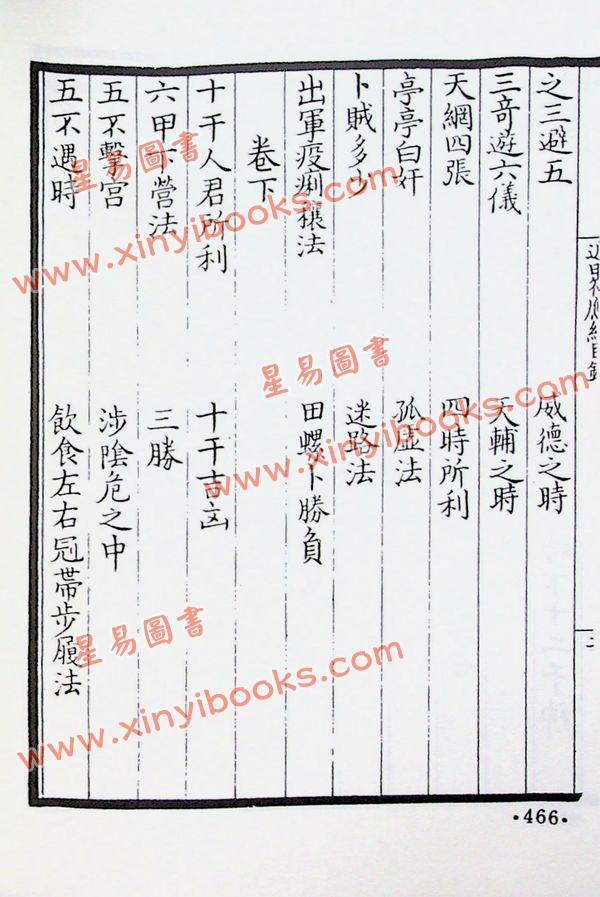 之三避五　威德之時
三奇遊六儀　天輔之時
天網四張　四時所利
亭亭白奸　孤虛法
卜賊多少　迷路法
出軍疫痢禳法　田螺卜勝負
卷下
十干人君所利　十干吉凶
六甲下營法　三勝
五不擊宮　涉陰危之中
五不遇時　飲食左右冠帶步履法
·466·
星易圖書
www.xinyibooks.com
星易圖書
www.xinyibooks.com
星易圖書
www.xinyibooks.com